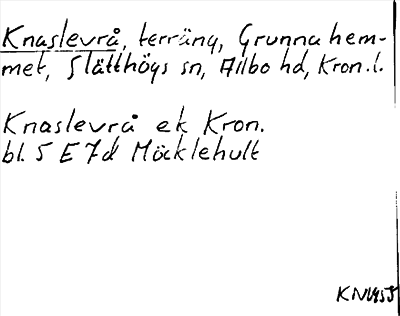 Knaslevrå, terräng, Grunnahem-
met, Slätthögs sn, Allbo hd, Kron. l.
Knaslevrå ek Kron.
bl. 5 E 7d Möcklehult